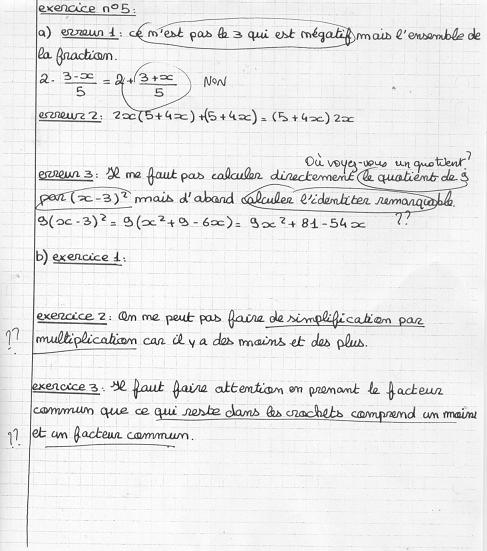 exercice n°5:
a) erreur 1: ce n'est pas le 3 qui est négatif mais l'ensemble de
la fraction.
2 - (3-x)/5 = 2 + (3+x)/5 NON
erreur 2: 2x(5+4x)+(5+4x) = (5+4x) 2x
Où voyez-vous un quotient?
erreur 3: Il ne faut pas calculer directement le quotient de 9
par (x-3)² mais d'abord calculer l'identiter remarquable.
9(x-3)² = 9(x²+9-6x) = 9x²+81-54x ??
b) exercice 1:
exercice 2: On ne peut pas faire de simplification par
?? multiplication car il y a des moins et des plus.
exercice 3: Il faut faire attention en prenant le facteur
commun que ce qui reste dans les crochets comprend un moins
?? et un facteur commun.